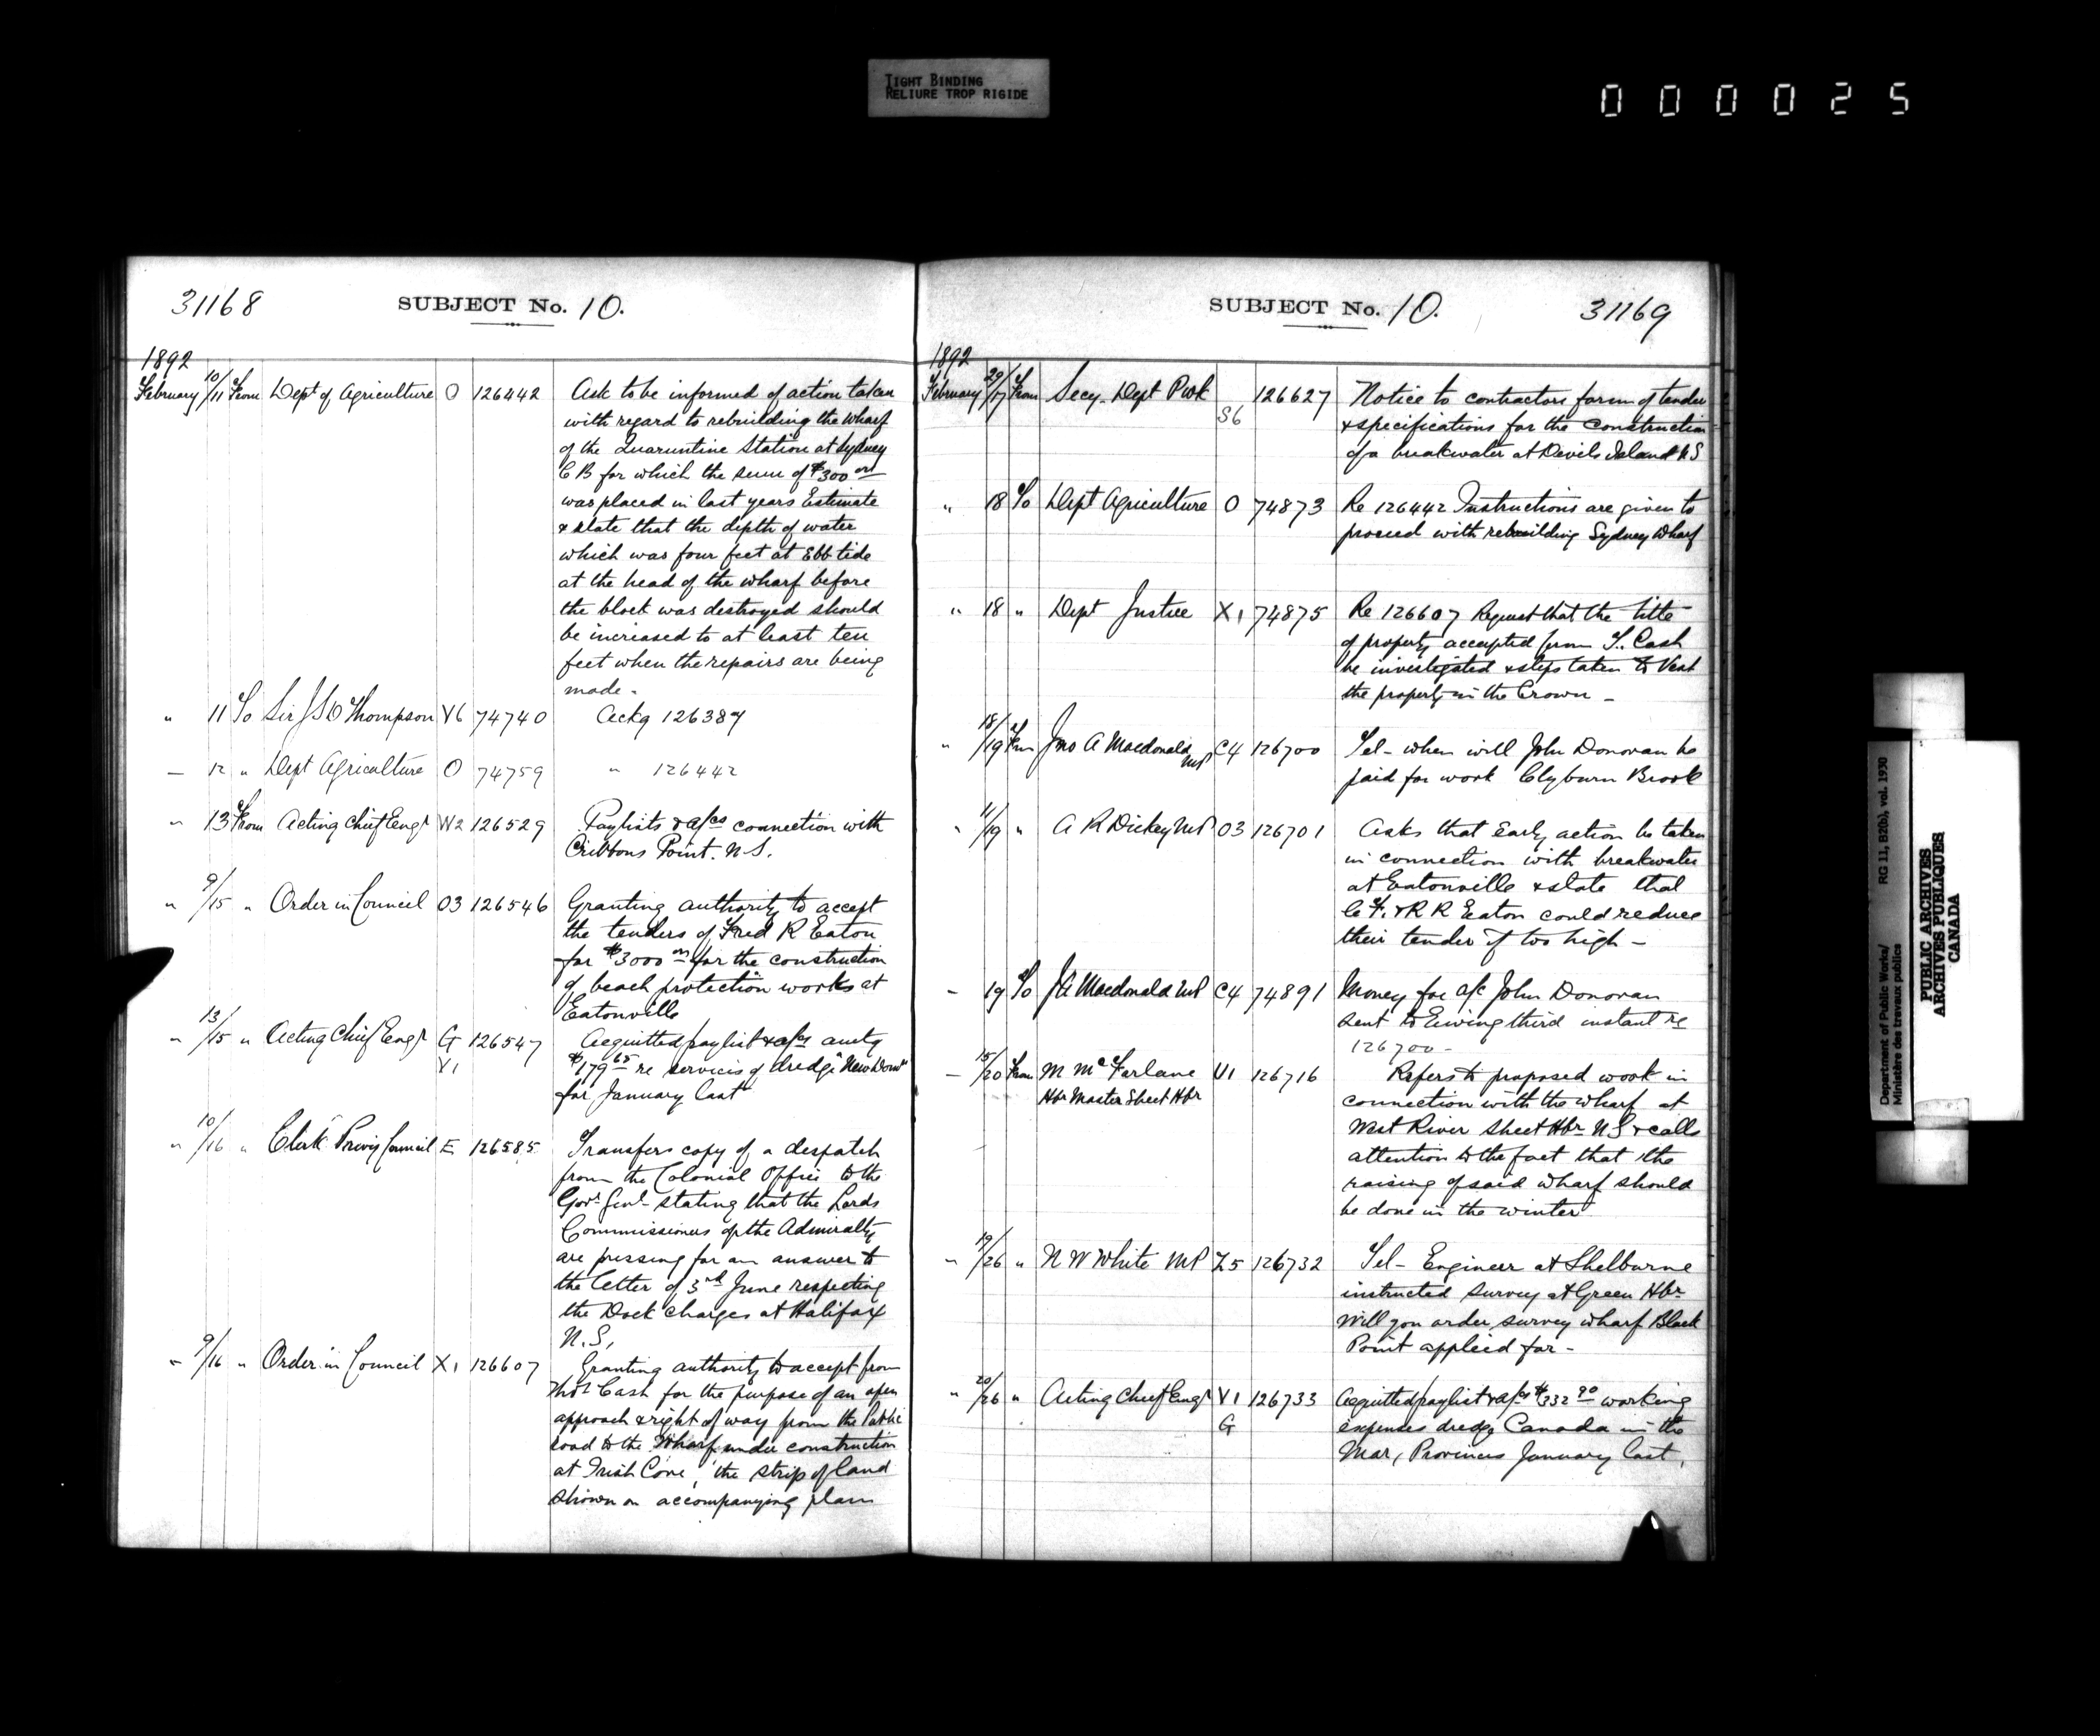 TIGHT BINDING
RELIURE TROP RIGIDE
000025
31168 SUBJECT No. 10.
1892
February 10/11 From Dept of Agriculture O 126442 Ask to be informed of action taken
with regard to rebuilding the wharf
of the Quaruntine Station at Sydney
C B for which the sum of $300 00
was placed in last years Estimate
& state that the depth of water
which was four feet at Ebb tide
at the head of the wharf before
the block was destroyed should
be increased to at least ten
feet when the repairs are being
made -
" 11 To Sir J S D Thompson V6 74740 Ackg 126387
— 12 " Dept Agriculture O 74759 " 126442
" 13 From Acting Chief Engr W2 126529 Paylists & a/cs connection with
Cribbons Point. N.S.
" 9/15 " Order in Council O3 126546 Granting authority to accept
the tenders of Fred R Eaton
for $3000 00 for the construction
of beach protection works at
Eatonville
" 13/15 " Acting Chief Engr G 126547 Acquitted paylist & a/cs amtg
V1 $179 65 re services of dredge "New Dom"
for January last
" 10/16 " Clerk Privy Council E 126585 Transfers copy of a despatch
from the Colonial Office to the
Govr Genl - stating that the Lords
Commissioners of the Admiralty
are pressing for an answer to
the letter of 3rd June respecting
the Dock charges at Halifax
N.S.
" 9/16 " Order in Council X1 126607 Granting authority to accept from
Thos Cash for the purpose of an open
approach & right of way from the Public
road to the Wharf under construction
at Irish Cove, the strip of land
shown on accompanying plan
SUBJECT No. 10. 31169
1892
February /17 From Secy - Dept P Wk S6 126627 Notice to contractors form of tender
& specifications for the construction
of a breakwater at Devils Island N S
" 18 To Dept Agriculture O 74873 Re 126442 Instructions are given to
proceed with rebuilding Sydney Wharf
" 18 " Dept Justice X1 74875 Re 126607 Request that the title
of property accepted from T. Cash
be investigated & steps taken to Vest
the property in the Crown -
" 18/19 From Jno A Macdonald MP C4 126700 Tel - when will John Donovan be
paid for work Clyburn Brook
" 11/19 " A R Dickey MP O3 126701 Asks that early action be taken
in connection with breakwater
at Eatonville & state that
C F. & R R Eaton could reduce
their tender if too high -
— 19 To J A Macdonald MP C4 74891 Money for a/c John Donovan
sent to Ewing third instant re
126700 -
— 15/20 From M McFarlane V1 126716 Refers to proposed work in
Hbr Master Sheet Hbr connection with the wharf at
West River Sheet Hbr N S & calls
attention to the fact that the
raising of said wharf should
be done in the winter
" 19/26 " N W White MP Z5 126732 Tel - Engineer at Shelburne
instructed survey at Green Hbr
Will you order survey wharf Black
Point applied for -
" 20/26 " Acting Chief Engr V1 126733 Acquitted paylist & a/cs $332 90 working
G expenses dredge Canada in the
Mar, Provinces January last.
Department of Public Works/ RG 11, B2(b), vol. 1930
Ministère des travaux publics
PUBLIC ARCHIVES
ARCHIVES PUBLIQUES
CANADA